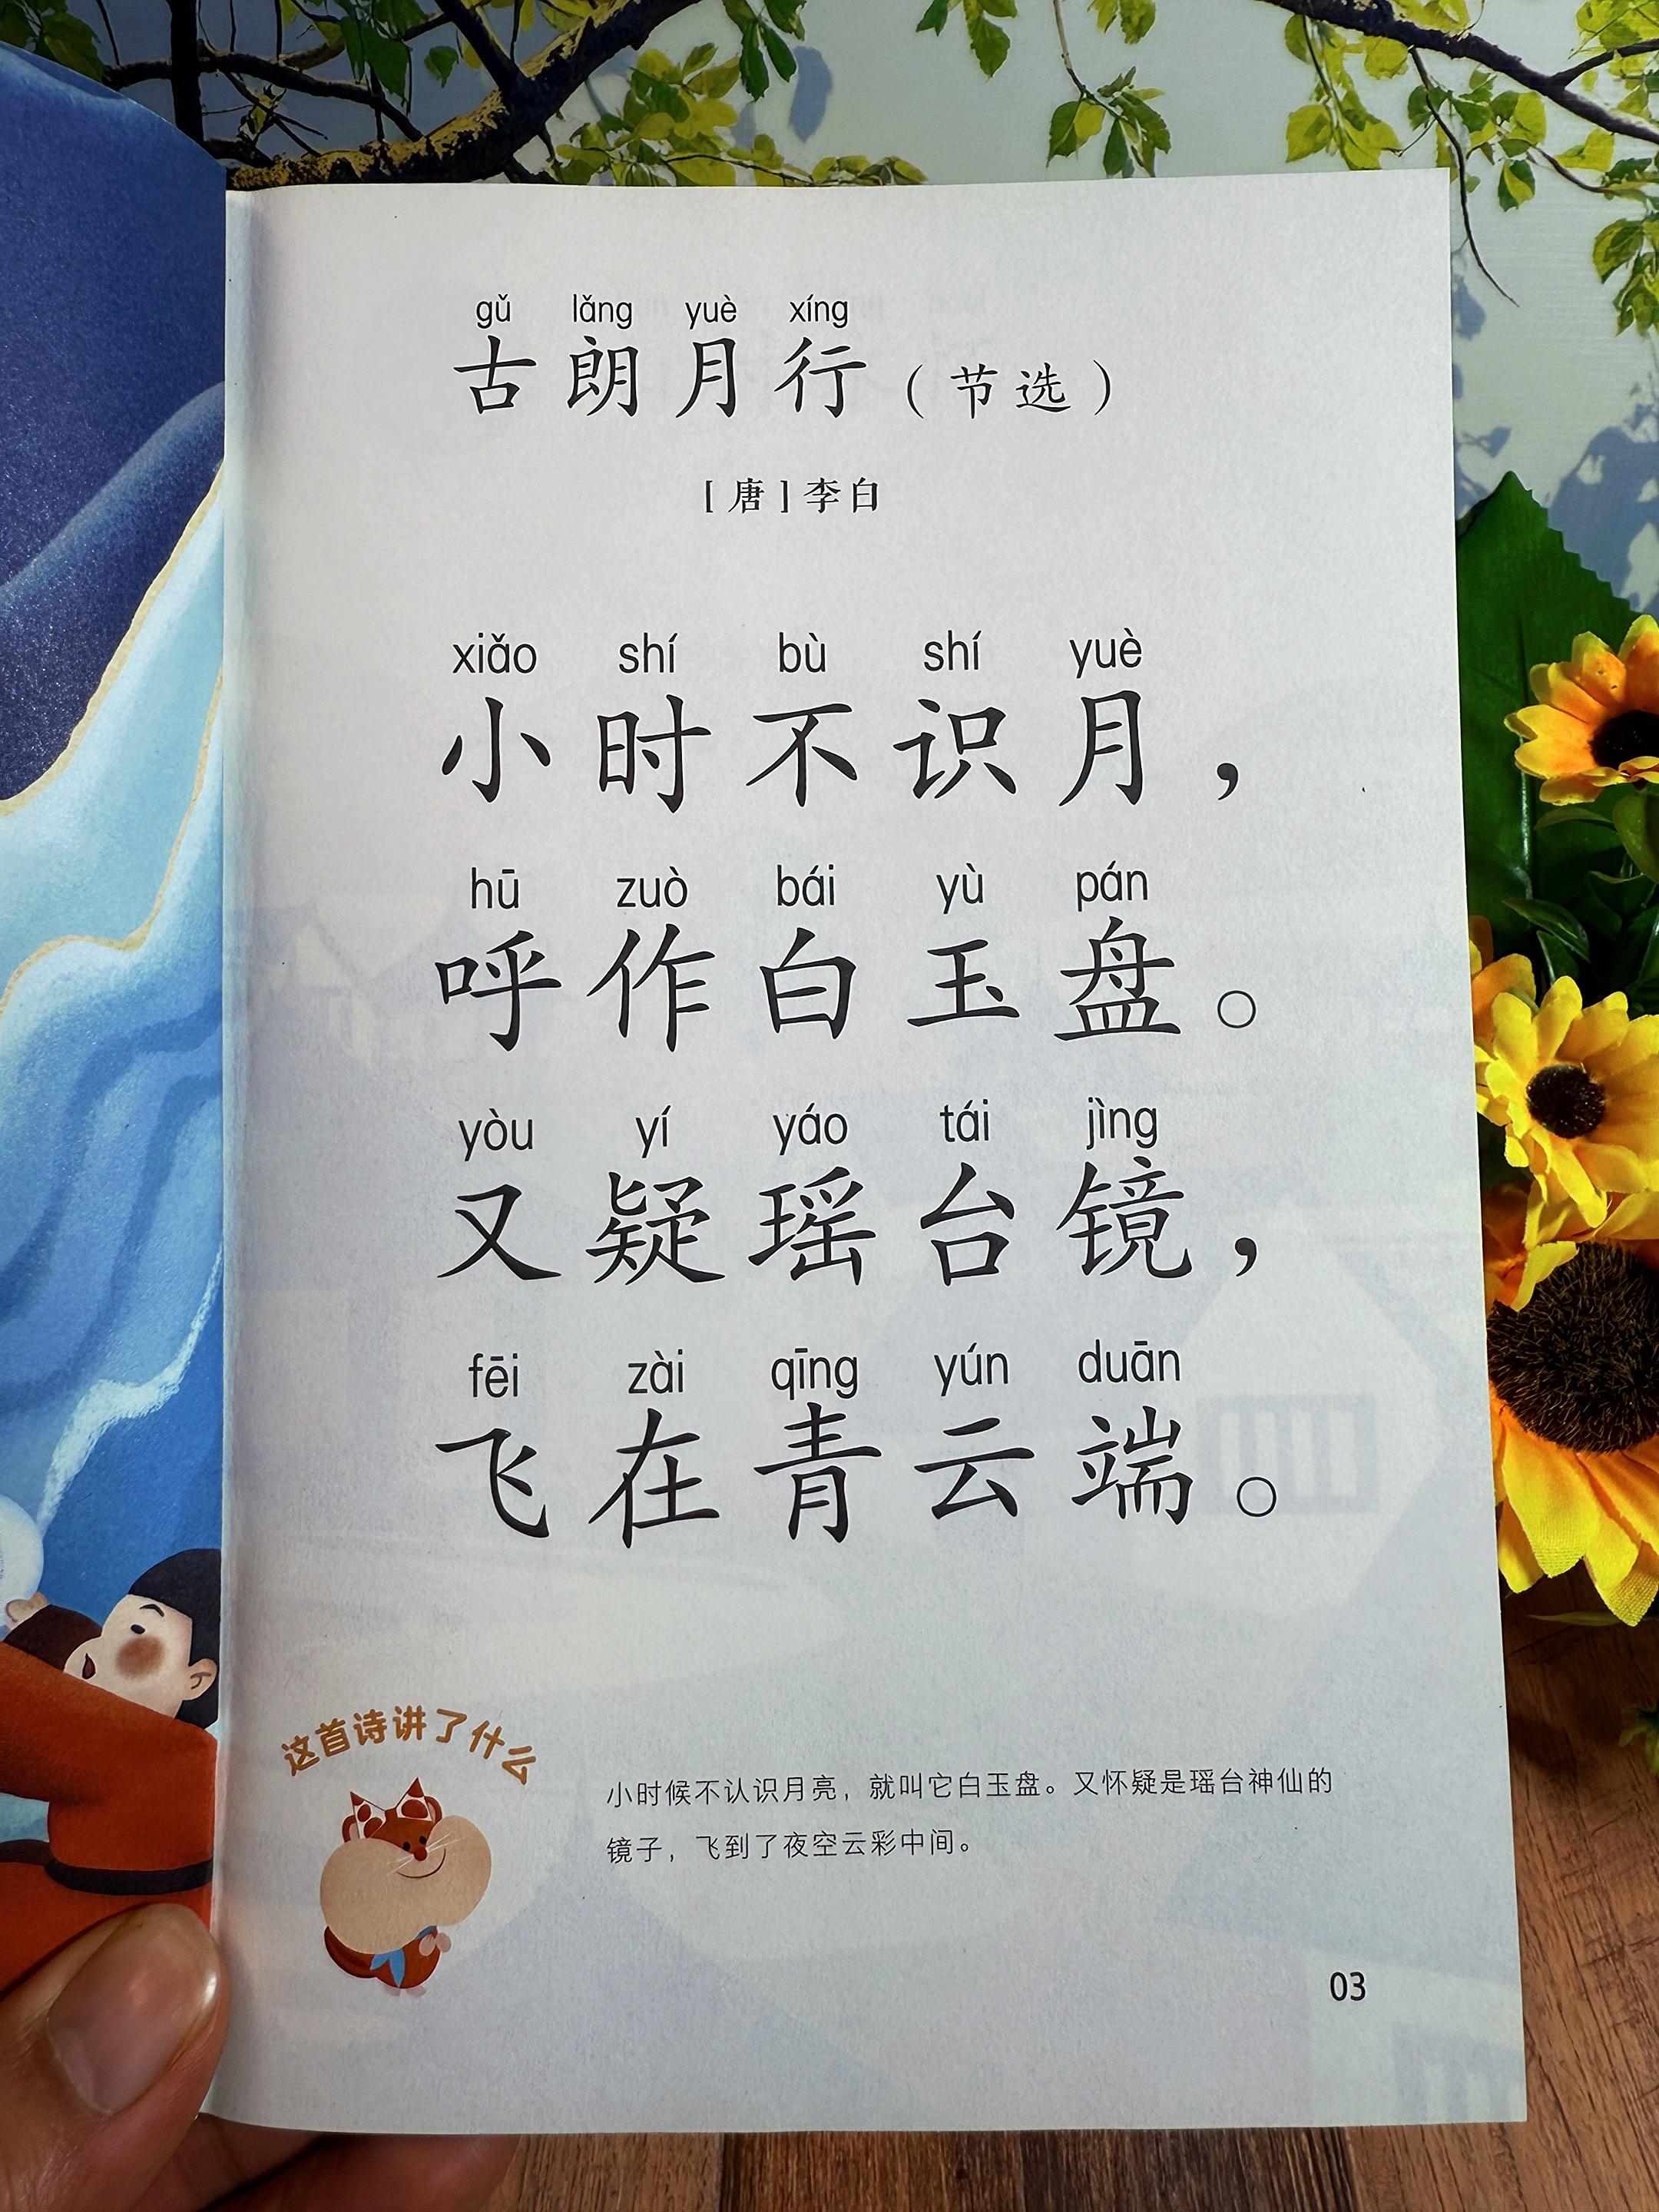 gǔ lǎng yuè xíng
古朗月行（节选）
[唐]李白
xiǎo shí bù shí yuè
小时不识月，
hū zuò bái yù pán
呼作白玉盘。
yòu yí yáo tái jìng
又疑瑶台镜，
fēi zài qīng yún duān
飞在青云端。
这首诗讲了什么
小时候不认识月亮，就叫它白玉盘。又怀疑是瑶台神仙的
镜子，飞到了夜空云彩中间。
03